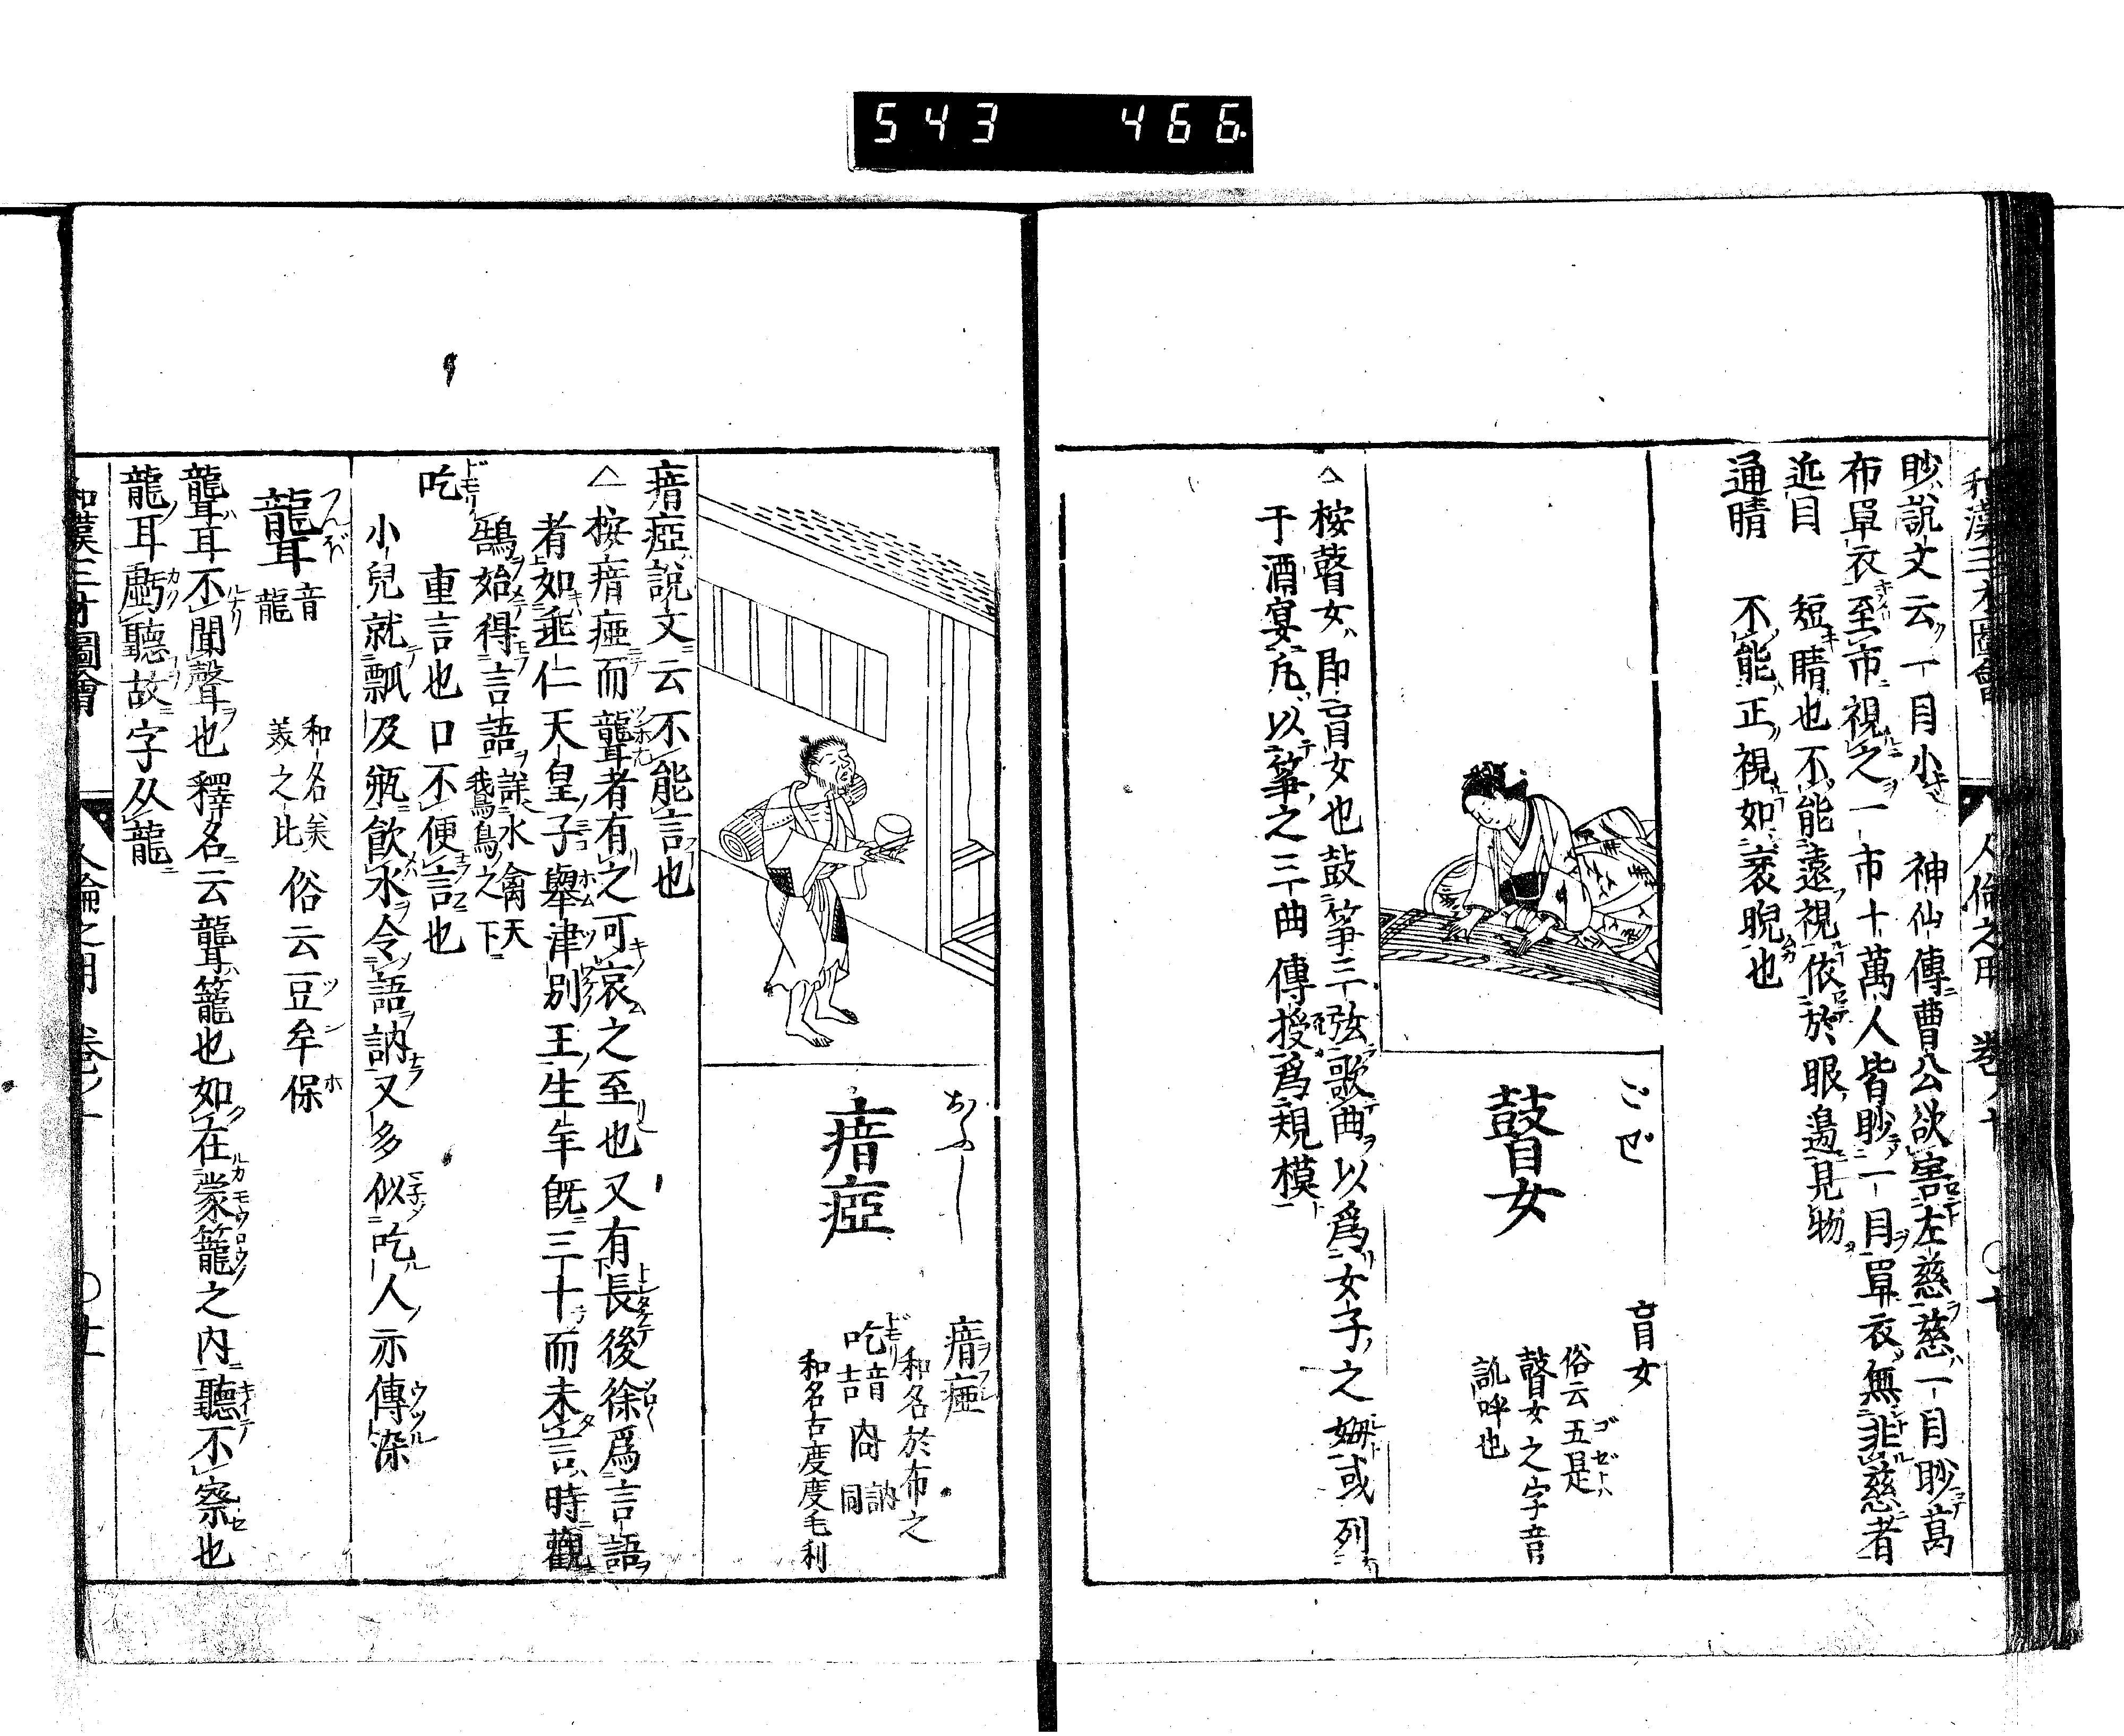 543 466
和漢三才圖會 人倫之用 巻ノ十
眇說文云一目小 神仙傳曹公欲害左慈慈一目眇葛
布單衣至市視之一市十萬人皆眇一目單衣無非慈者
近目 短睛也不能遠視依於眼邉見物
通睛 不能正視如袤睨也
ごぜ
瞽女
盲女
俗云五是
瞽女之字音
訛呼也
△按瞽女即盲女也鼓箏三弦歌曲以爲女子之師或列
于酒宴凡以箏之三曲傳授爲規模
瘖瘂
瘖瘂
和名於布之
吃音吉 㕯訥同
和名古度度毛利
瘖瘂說文云不能言也
△按瘖瘂而聾者有之可哀之至也又有長後徐爲言語
者如垂仁天皇子擧津別王生年旣三十而未言時觀
鵠始得言語詳水禽天鵞鳥之下
吃 重言也口不便言也
小兒就瓢及瓶飮水令語訥又多似吃人亦傳染
つんぼ
聾 音龍
和名美美之比 俗云豆牟保
聾耳不聞聲也釋名云聾籠也如在蒙籠之内聽不察也
龍耳虧聽故字从龍
和漢三才圖會 人倫之用 巻ノ十 〇十一